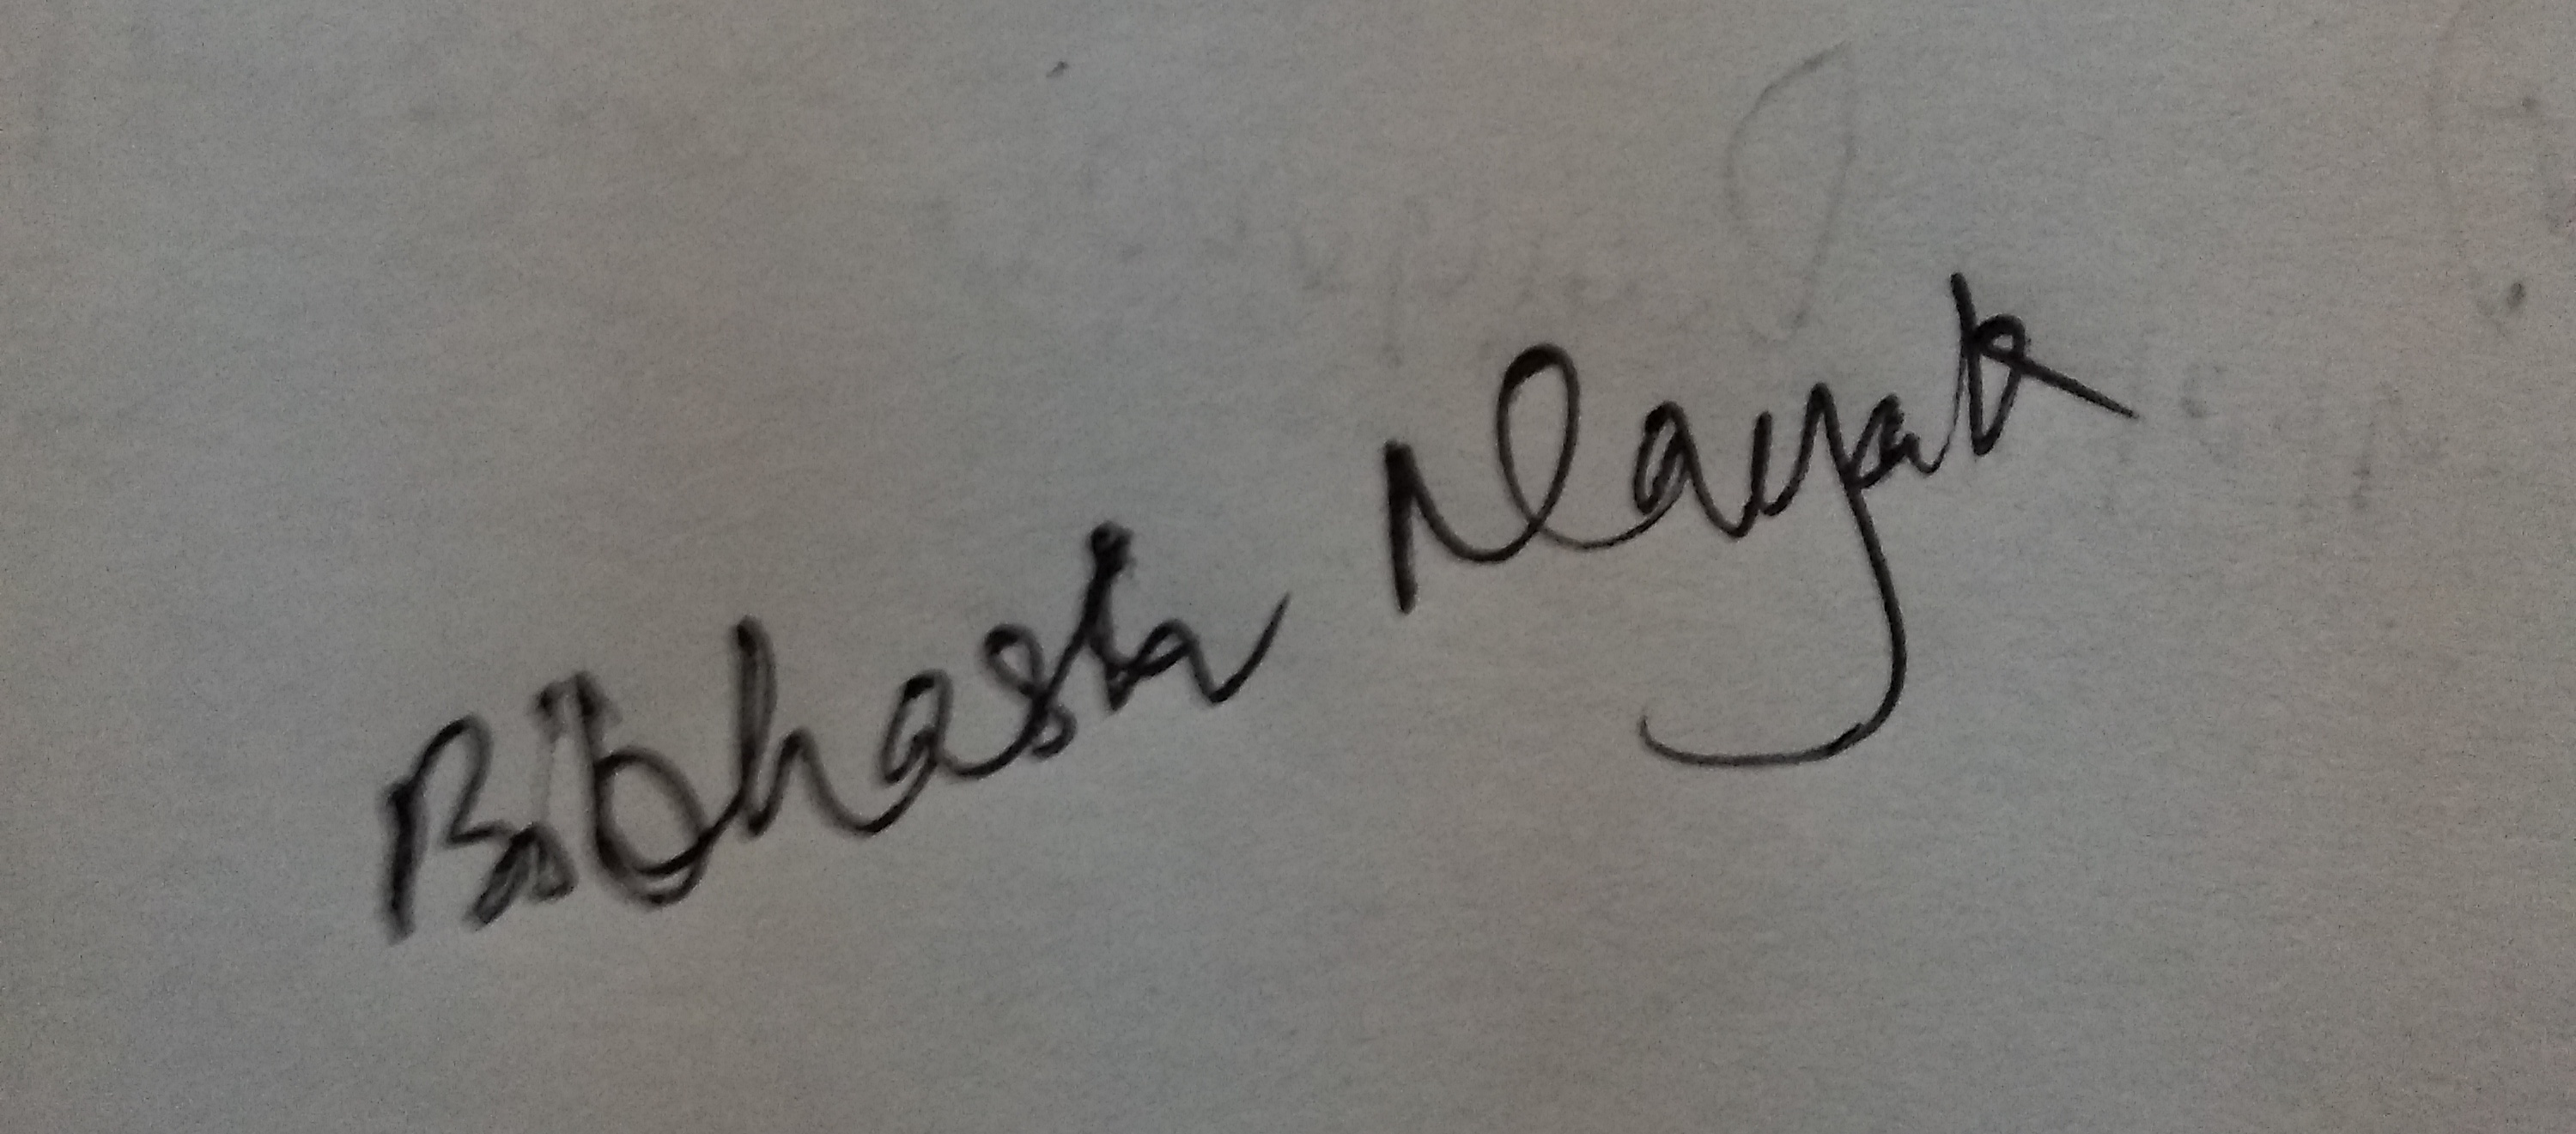 Bibhasa Nayak